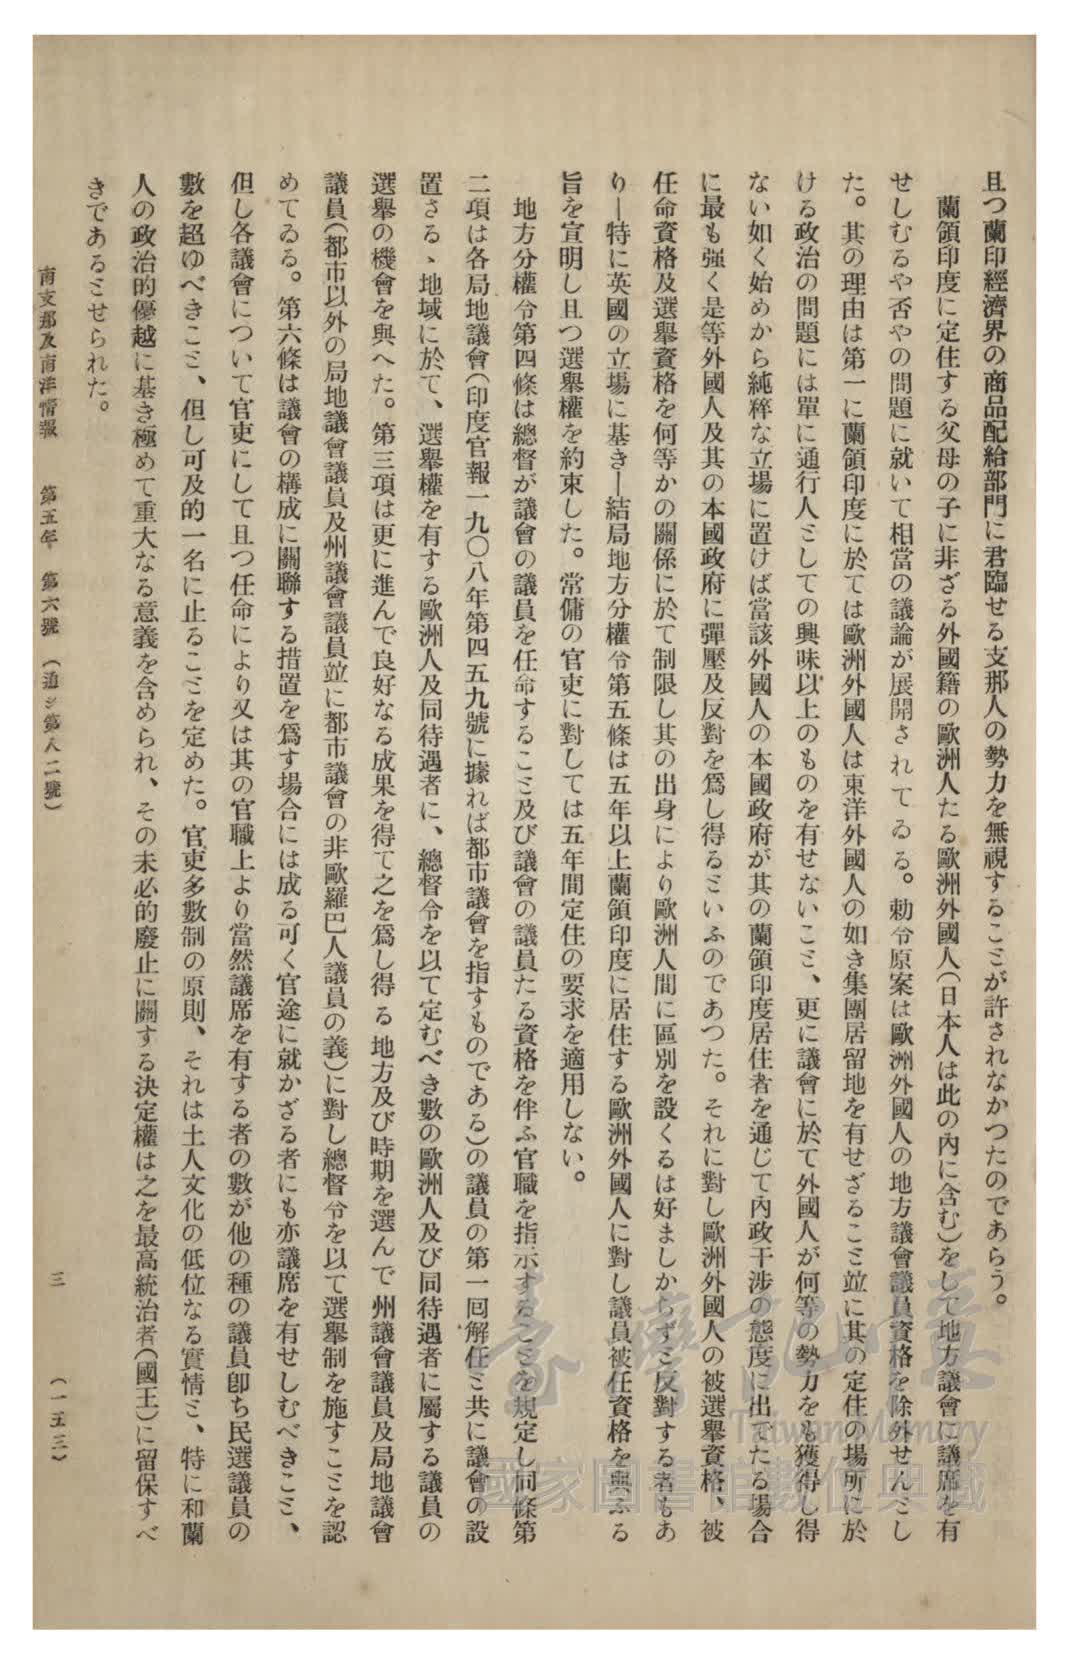 且つ蘭印經濟界の商品配給部門に君臨せる支那人の勢力を無視することが許されなかつたのであらう。
蘭領印度に定住する父母の子に非ざる外國籍の歐洲人たる歐洲外國人（日本人は此の內に含む）をして地方議會に議席を有
せしむるや否やの問題に就いて相當の議論が展開されてゐる。勅令原案は歐洲外國人の地方議會議員資格を除外せんとし
た。其の理由は第一に蘭領印度に於ては歐洲外國人は東洋外國人の如き集團居留地を有せざること竝に其の定住の場所に於
ける政治の問題には單に通行人としての興味以上のものを有せないこと、更に議會に於て外國人が何等の勢力をも獲得し得
ない如く始めから純粹な立場に置けば當該外國人の本國政府が其の蘭領印度居住者を通じて內政干涉の態度に出でたる場合
に最も強く是等外國人及其の本國政府に彈壓及反對を爲し得るといふのであつた。それに對し歐洲外國人の被選擧資格、被
任命資格及選擧資格を何等かの關係に於て制限し其の出身により歐洲人間に區別を設くるは好ましからずと反對する者もあ
り―特に英國の立場に基き―結局地方分權令第五條は五年以上蘭領印度に居住する歐洲外國人に對し議員被任資格を與ふる
旨を宣明し且つ選擧權を約束した。常傭の官吏に對しては五年間定住の要求を適用しない。
地方分權令第四條は總督が議會の議員を任命すること及び議會の議員たる資格を伴ふ官職を指示することを規定し同條第
二項は各局地議會（印度官報一九〇八年第四五九號に據れば都市議會を指すものである）の議員の第一囘解任と共に議會の設
置さるゝ地域に於て、選擧權を有する歐洲人及同待遇者に、總督令を以て定むべき數の歐洲人及び同待遇者に屬する議員の
選擧の機會を與へた。第三項は更に進んで良好なる成果を得て之を爲し得る地方及び時期を選んで州議會議員及局地議會
議員（都市以外の局地議會議員及州議會議員竝に都市議會の非歐羅巴人議員の義）に對し總督令を以て選擧制を施すことを認
めてゐる。第六條は議會の構成に關聯する措置を爲す場合には成る可く官途に就かざる者にも亦議席を有せしむべきこと、
但し各議會について官吏にして且つ任命により又は其の官職上より當然議席を有する者の數が他の種の議員卽ち民選議員の
數を超ゆべきこと、但し可及的一名に止ることを定めた。官吏多數制の原則、それは土人文化の低位なる實情と、特に和蘭
人の政治的優越に基き極めて重大なる意義を含められ、その未必的廢止に關する決定權は之を最高統治者（國王）に留保すべ
きであるとせられた。
南支那及南洋情報　第五年　第六號　（通シ第八二號）　三　（一五三）
臺灣記憶
Taiwan Memory
國家圖書館數位典藏